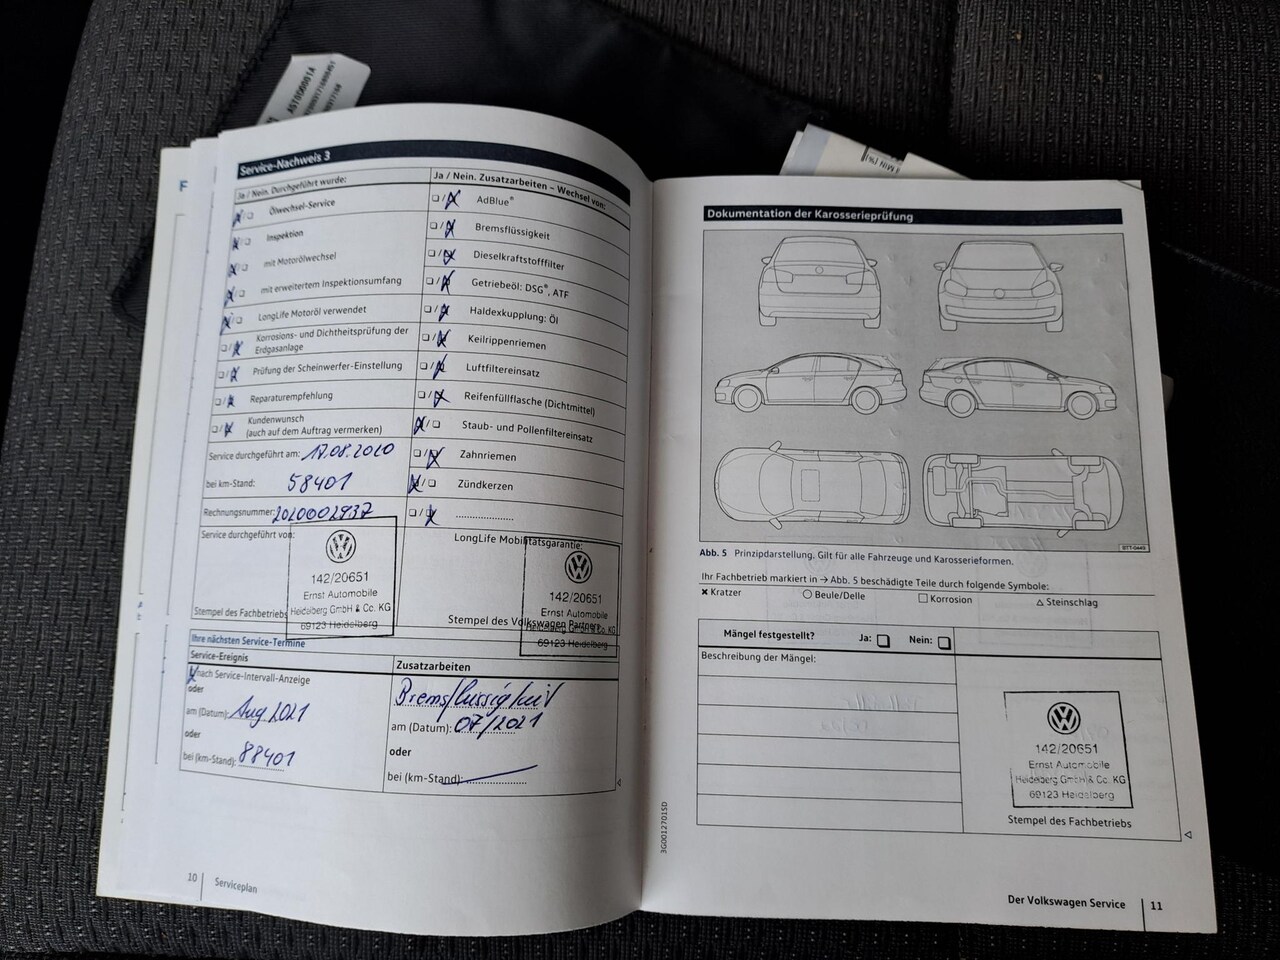 AST0D6001A
MIN [%]
Service-Nachweis 3
Ja / Nein. Durchgeführt wurde:
Ölwechsel-Service
Inspektion
mit Motorölwechsel
mit erweitertem Inspektionsumfang
LongLife Motoröl verwendet
Korrosions- und Dichtheitsprüfung der
Erdgasanlage
Prüfung der Scheinwerfer-Einstellung
Reparaturempfehlung
Kundenwunsch
(auch auf dem Auftrag vermerken)
Service durchgeführt am: 17.08.2020
bei km-Stand: 58401
Rechnungsnummer: 2020002937
Service durchgeführt von:
142/20651
Ernst Automobile
Heidelberg GmbH & Co. KG
69123 Heidelberg
Stempel des Fachbetriebs
Ja / Nein. Zusatzarbeiten – Wechsel von:
AdBlue®
Bremsflüssigkeit
Dieselkraftstofffilter
Getriebeöl: DSG®, ATF
Haldexkupplung: Öl
Keilrippenriemen
Luftfiltereinsatz
Reifenfüllflasche (Dichtmittel)
Staub- und Pollenfiltereinsatz
Zahnriemen
Zündkerzen
LongLife Mobilitätsgarantie:
142/20651
Ernst Automobile
Heidelberg GmbH & Co. KG
69123 Heidelberg
Stempel des Volkswagen Partners
Ihre nächsten Service-Termine
Service-Ereignis
nach Service-Intervall-Anzeige
oder
am (Datum): Aug 2021
oder
bei (km-Stand): 88401
Zusatzarbeiten
Bremsflüssigkeit
am (Datum): 07/2021
oder
bei (km-Stand):
10 Serviceplan
Dokumentation der Karosserieprüfung
BTT-0449
Abb. 5 Prinzipdarstellung. Gilt für alle Fahrzeuge und Karosserieformen.
Ihr Fachbetrieb markiert in → Abb. 5 beschädigte Teile durch folgende Symbole:
✖ Kratzer ○ Beule/Delle □ Korrosion △ Steinschlag
Mängel festgestellt? Ja: Nein:
Beschreibung der Mängel:
142/20651
Ernst Automobile
Heidelberg GmbH & Co. KG
69123 Heidelberg
Stempel des Fachbetriebs
3G0012701SD
Der Volkswagen Service 11